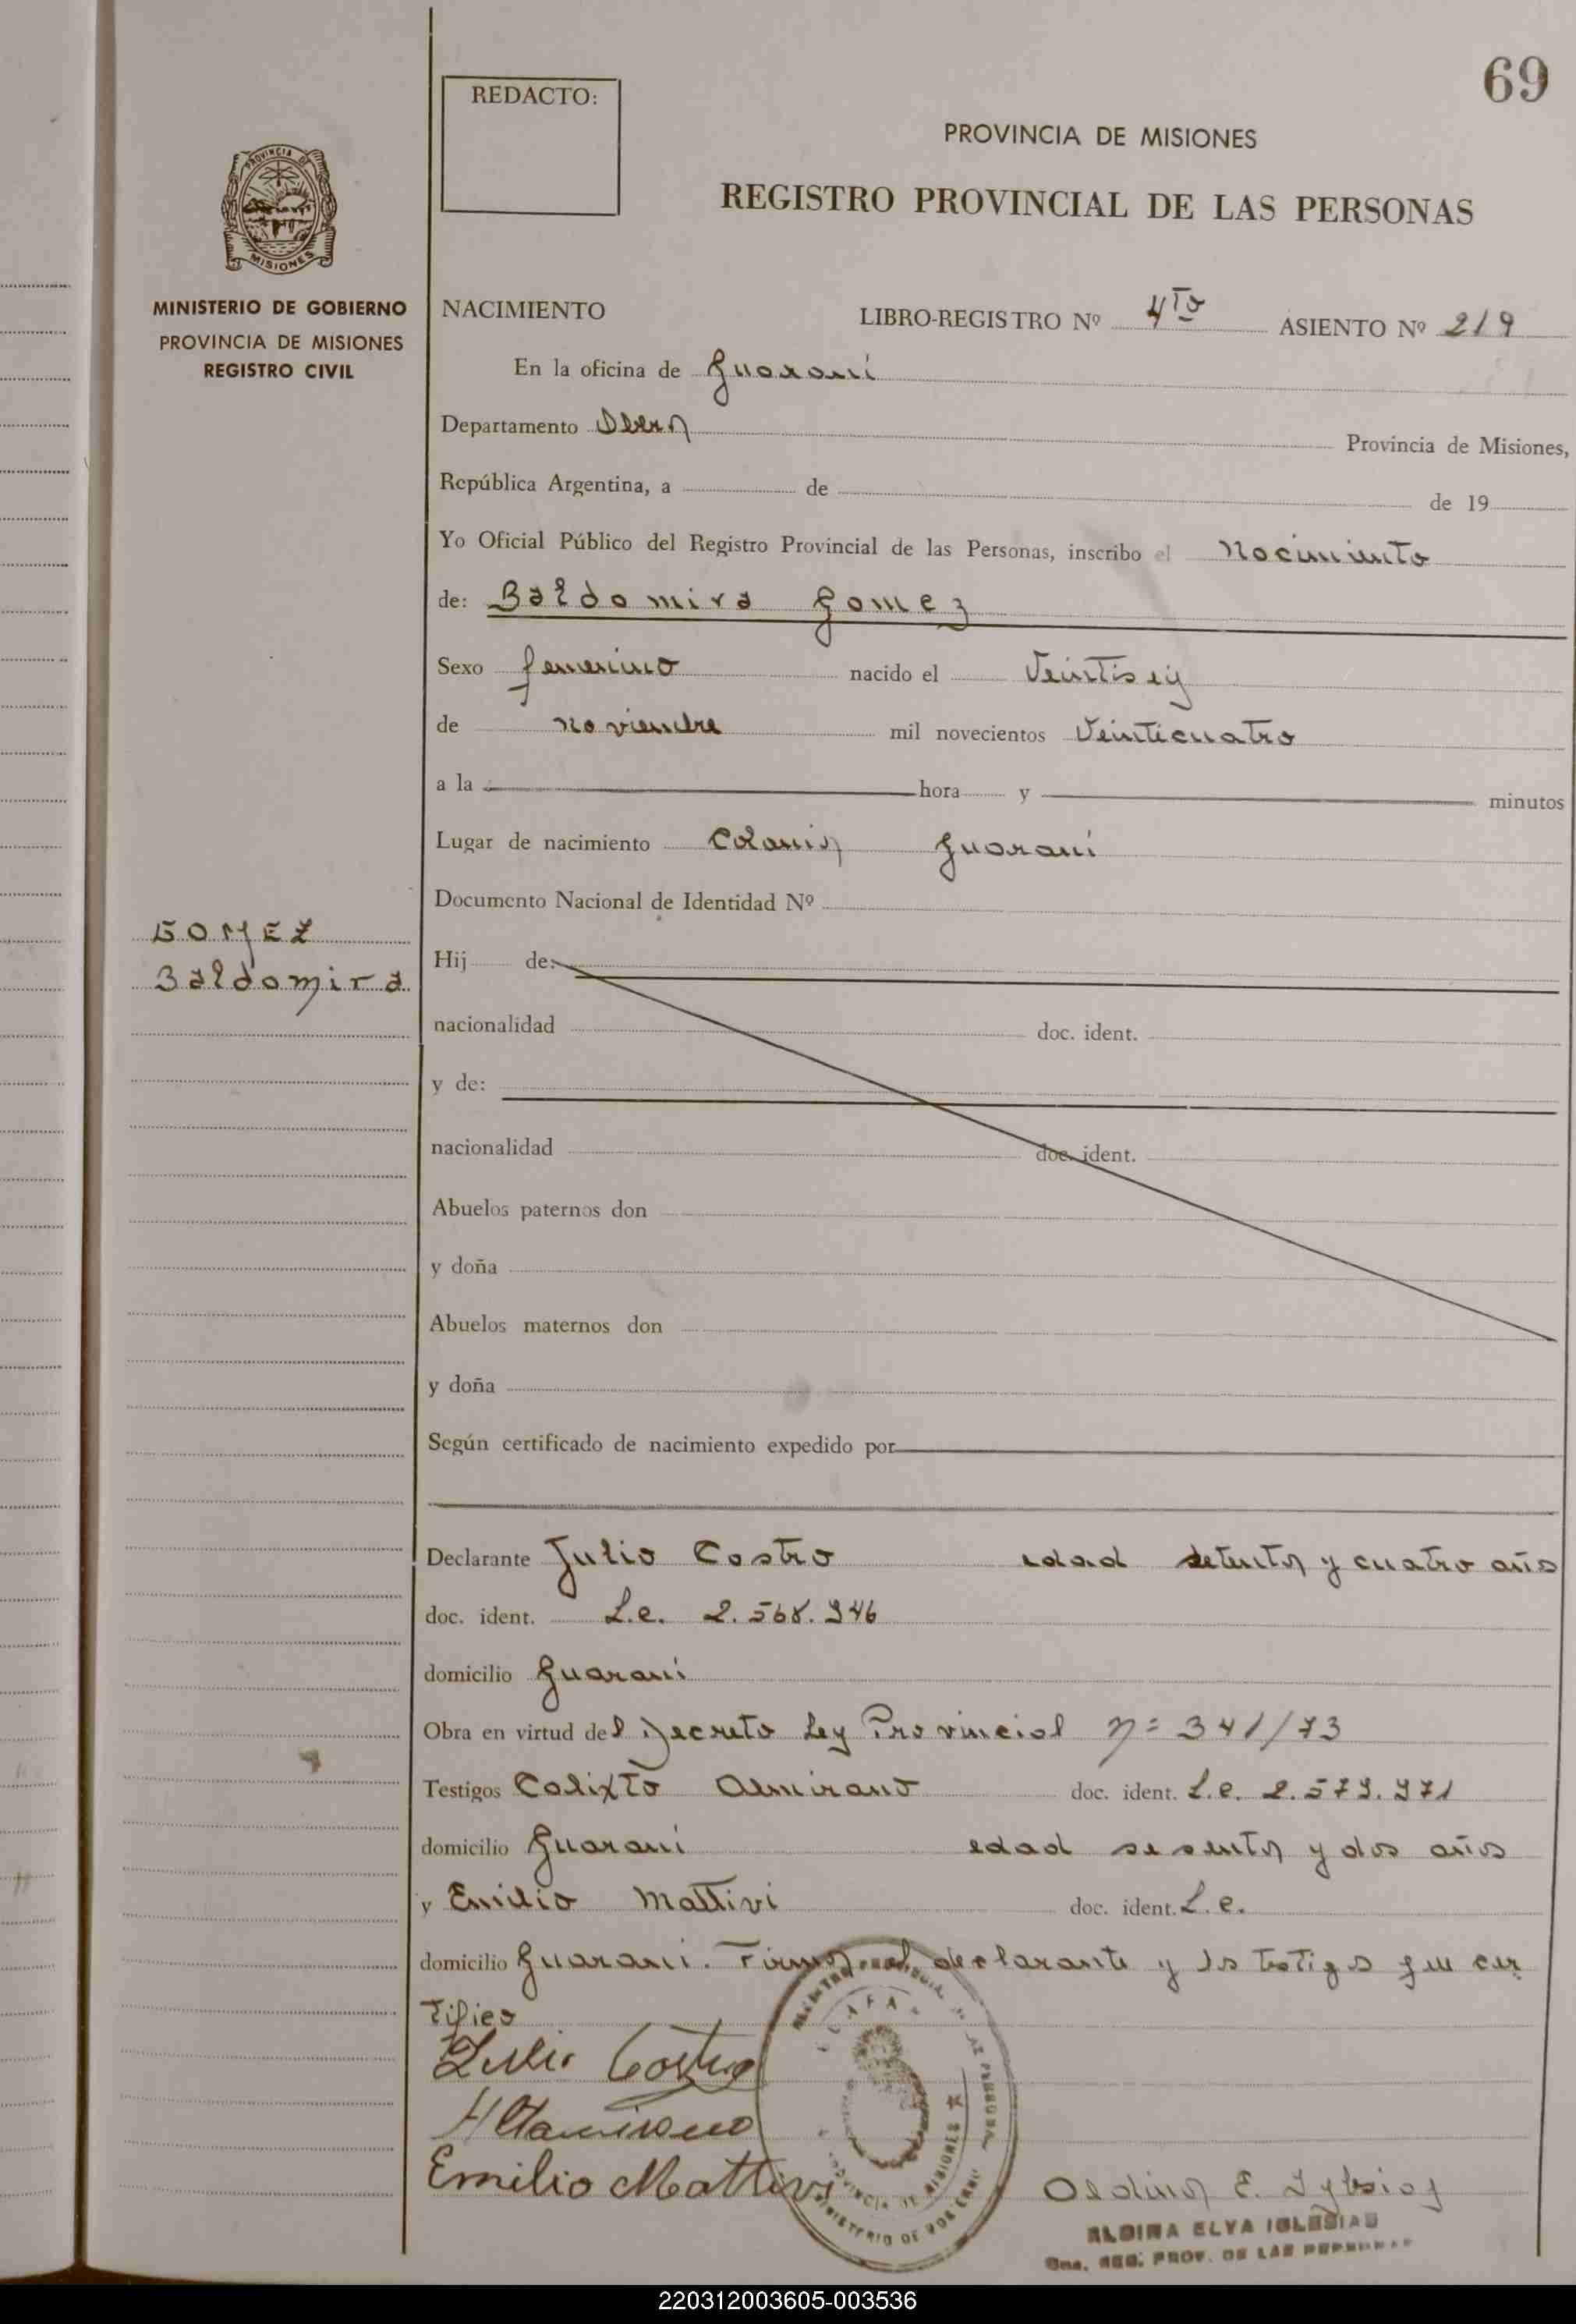 69
REDACTO:
PROVINCIA DE MISIONES
REGISTRO PROVINCIAL DE LAS PERSONAS
PROVINCIA DE
MISIONES
MINISTERIO DE GOBIERNO
PROVINCIA DE MISIONES
REGISTRO CIVIL
NACIMIENTO LIBRO-REGISTRO Nº 4to ASIENTO Nº 219
En la oficina de Guarani
Departamento Provincia de Misiones,
República Argentina, a de de 19
Yo Oficial Público del Registro Provincial de las Personas, inscribo el Nacimiento
de: Baldomira Gomez
Sexo femenino nacido el Veintiseis
de noviembre mil novecientos Veinticuatro
a la hora y minutos
Lugar de nacimiento Colonia Guaraní
Documento Nacional de Identidad Nº
GOMEZ
Baldomira
Hij de:
nacionalidad doc. ident.
y de:
nacionalidad doc. ident.
Abuelos paternos don
y doña
Abuelos maternos don
y doña
Según certificado de nacimiento expedido por
Declarante Julio Castro edad setenta y cuatro años
doc. ident. L.e. 2.568.946
domicilio Guaraní
Obra en virtud del Decreto Ley Provincial nº 341/73
Testigos Calixto doc. ident. L.e. 2.579.971
domicilio Guaraní edad sesenta y dos años
y Emilio Mattivi doc. ident. L.e.
domicilio Guarani. Firman el declarante y los testigos que cer
tifico
Julio Castro
Altamirano
Emilio Mattivi
PROVINCIA DE MISIONES
MINISTERIO DE GOBIERNO
Aldina E. Iglesias
ALDINA ELVA IGLESIAS
REG. PROV. DE LAS PERSONAS
220312003605-003536